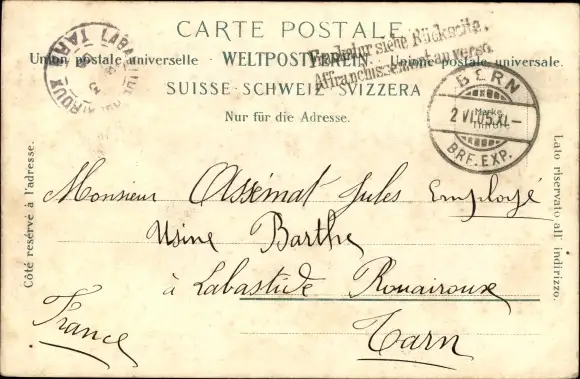 CARTE POSTALE.
Union postale universelle. WELTPOSTVEREIN. Unione postale universale.
SUISSE · SCHWEIZ · SVIZZERA
Nur für die Adresse.
Frankatur siehe Rückseite.
Affranchissement au verso.
BERN
2 VI.05.XI.–
BRF. EXP.
Marke
TARN
Côté reservé à l'adresse.
Lato riservato all' indirizzo.
Monsieur Assémat Jules Employé
Usine Barthe
à Labastide Rouairoux
Tarn
France